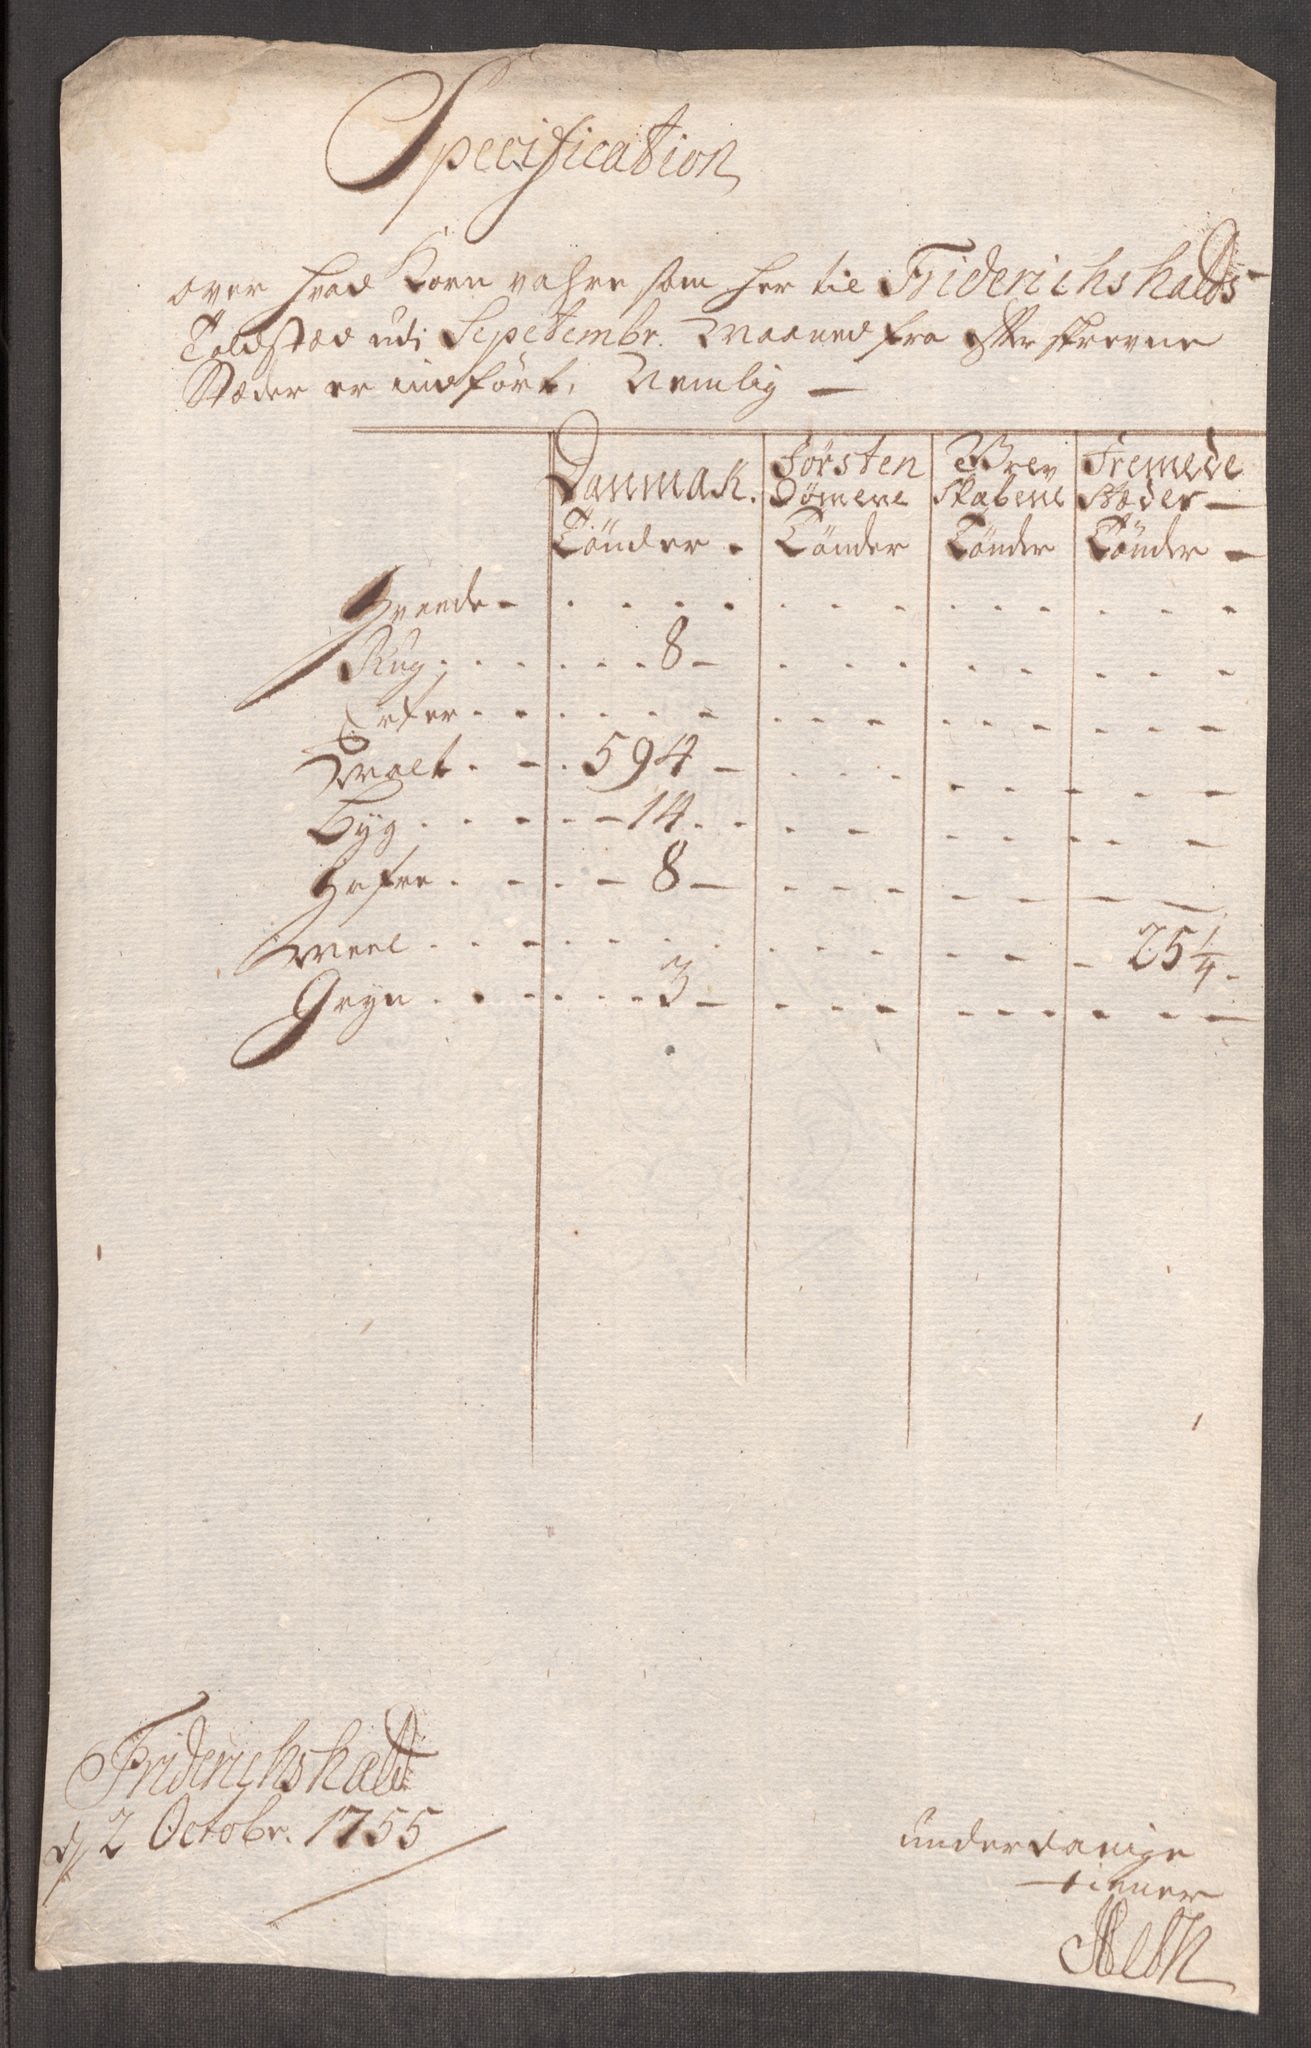 Specification
over hvad Korn vahre som her til Friderichshalds
Toldsted udi Septembr. Maaned fra efterskrevne
Stæder er indført, Nemlig —
Danmark. Førsten Brev Fremede
Dømene Skabene Stæder —
Tønder. Tønder Tønder Tønder —
Hvede
Rug 8
Erter
Malt 594
Byg 14
Hafre 8
Meel 25 1/4
Gryn 3
Friderichshald
d. 2 Octobr. 1755
underdanige
tiener